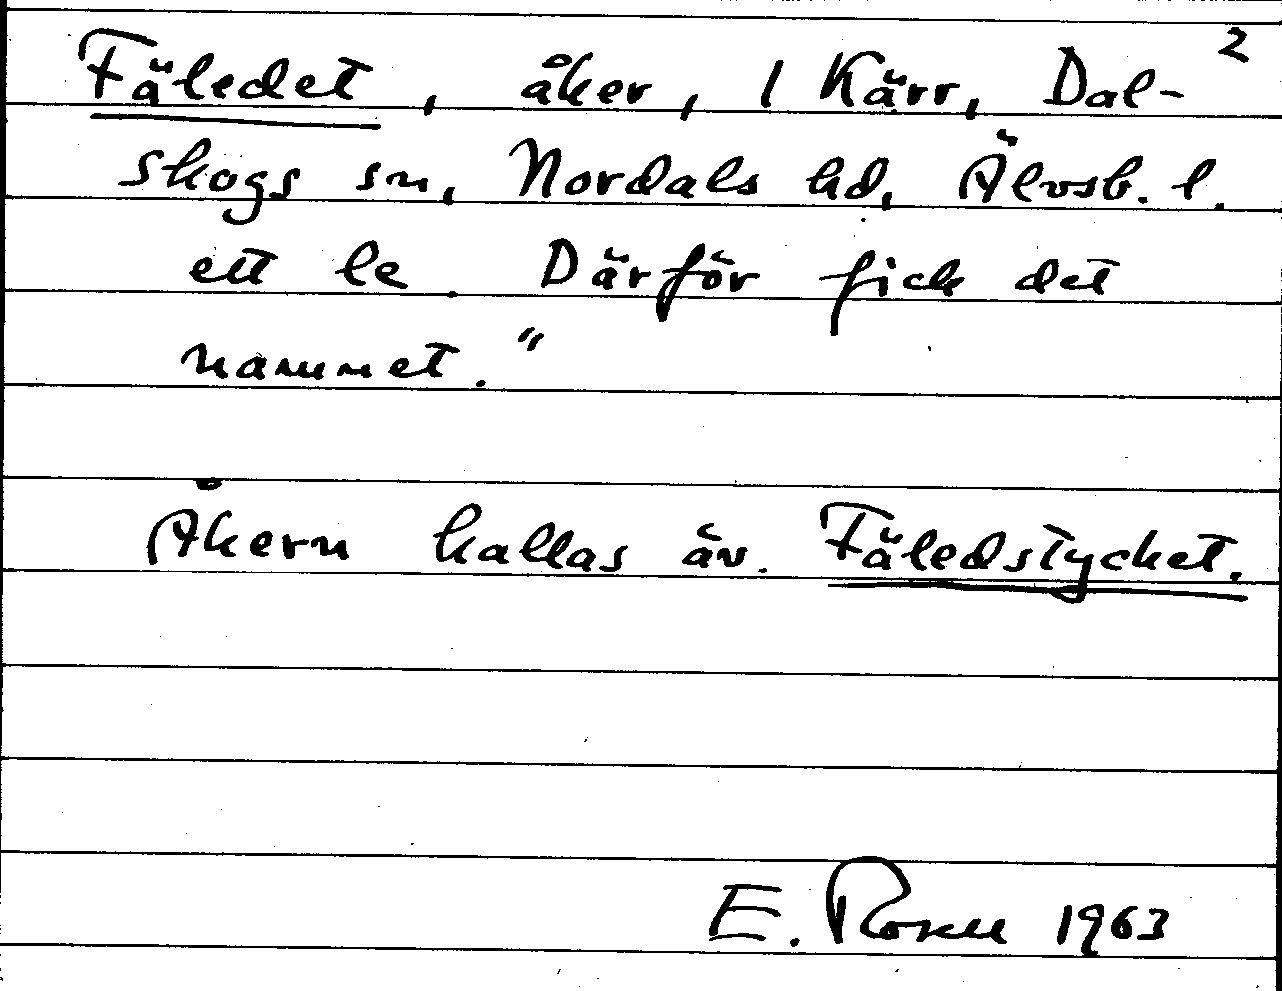 2
Fäledet, åker, 1 Kärr, Dal-
skogs sn, Nordals hd, Älvsb. l.
ett le. Därför fick det
namnet."
Åkern kallas äv. Fäledstycket.
E. Rosell 1963